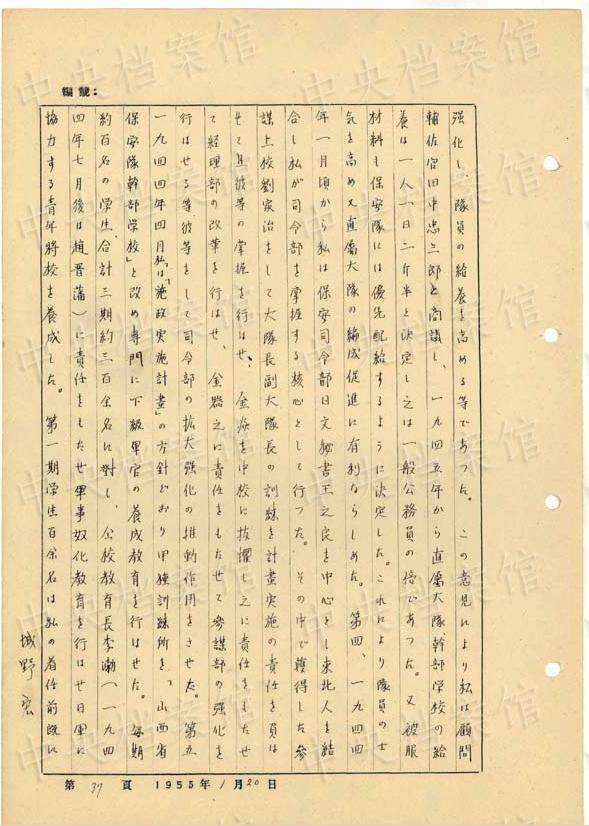 中央档案馆
編號:
強化し、隊員の給養を高める等であつた。この意見により私は顧問
輔佐官田中忠三郎と商議し、一九四五年から直属大隊幹部学校の給
養は一人一日二斤半と決定し之は一般公務員の倍であつた。又被服
材料も保安隊には優先配給するように決定した。これにより隊員の士
気を高め又直属大隊の編成促進に有利ならしめた。第四、一九四四
年一月頃から私は保安司令部日文秘書王之良を中心とし東北人を結
合し私が司令部を掌握する核心として行つた。その中で獲得した参
謀上校劉家治をして大隊長副大隊長の訓練を計畫実施の責任を負は
せて其彼等の掌握を行はせ、金 を中校に抜擢し之に責任をもたせ
て経理部の改革を行はせ、金器之に責任をもたせて参謀部の強化を
行はせる等彼等をして司令部の拡大強化の推動作用をさせた。第五
一九四四年四月私は「施政実施計畫」の方針どおり甲種訓練所を「山西省
保安隊幹部学校」と改め専門に下級軍官の養成教育を行はせた。毎期
約百名の学生、合計三期約三百余名に対し、公校教育長李 (一九四
四年七月後は趙晋藩)に責任をもたせ軍事奴化教育を行はせ日軍に
協力する青年將校を養成した。第一期学生百余名は私の着任前既に
城野宏
第 37 頁 1955年 1月20日